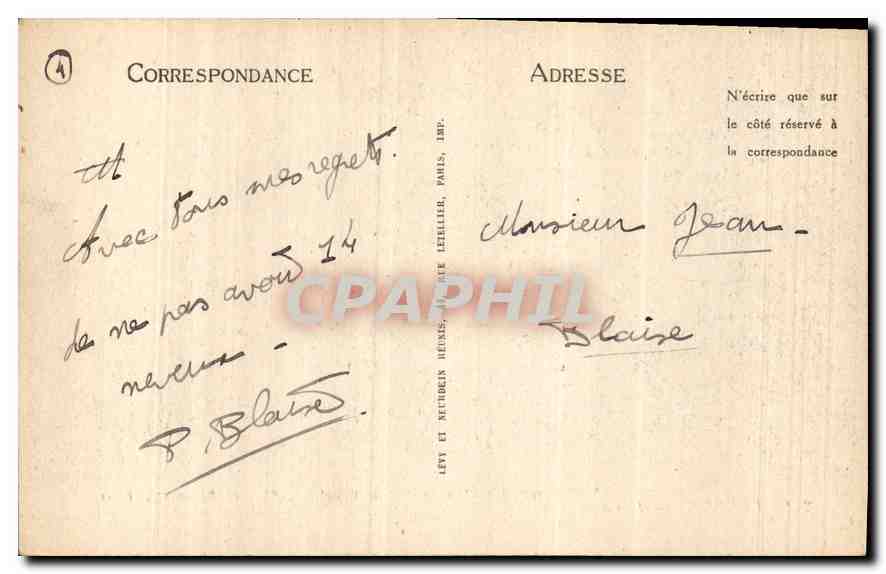 4
CORRESPONDANCE
Avec tous mes regrets
de ne pas avoir 14
neveux -
P. Blaise
LÉVY ET NEURDEIN RÉUNIS, RUE LETELLIER, PARIS, IMP.
ADRESSE
N'écrire que sur
le côté réservé à
la correspondance
Monsieur Jean -
Blaise
CPAPHIL